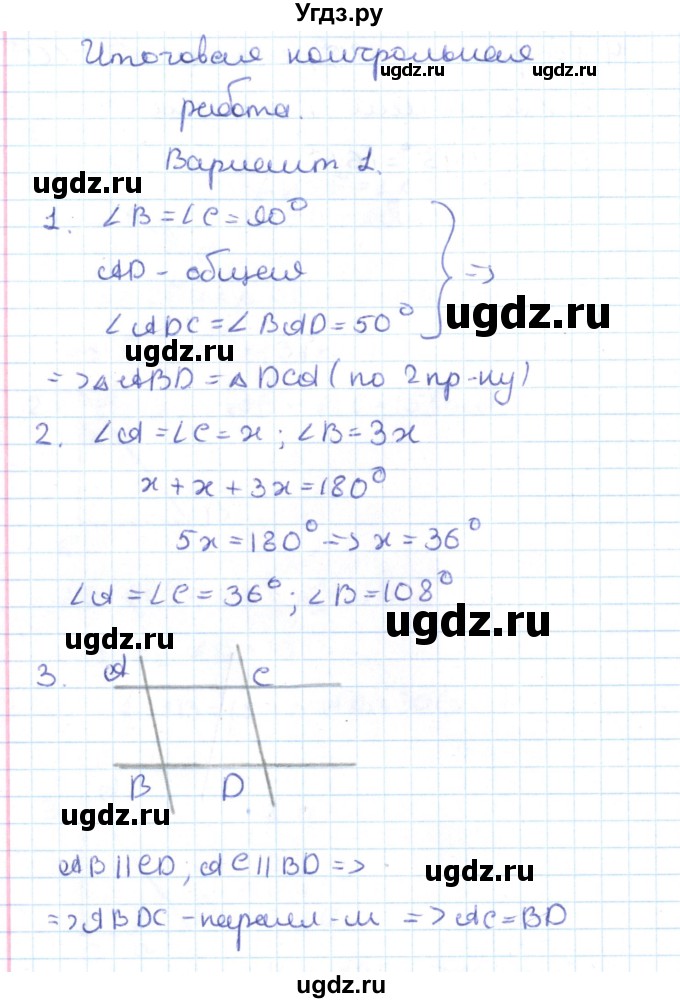 Угдз.ру
Итоговая контрольная
ugdz.ru ugdz.ru
работа.
Вариант 1.
ugdz.ru
1. ∠B = ∠C = 90°
AD - общая } =>
ugdz.ru
∠ADC = ∠BAD = 50°
ugdz.ru
=> △ABD = △DCA (по 2 пр-ку)
2. ∠A = ∠C = x ; ∠B = 3x
x + x + 3x = 180°
5x = 180° => x = 36°
∠A = ∠C = 36° ; ∠B = 108°
ugdz.ru
ugdz.ru
3. A C
B D
ugdz.ru
AB || CD , AC || BD =>
ugdz.ru
=> ABDC - паралл-м => AC = BD
ugdz.ru
ugdz.ru